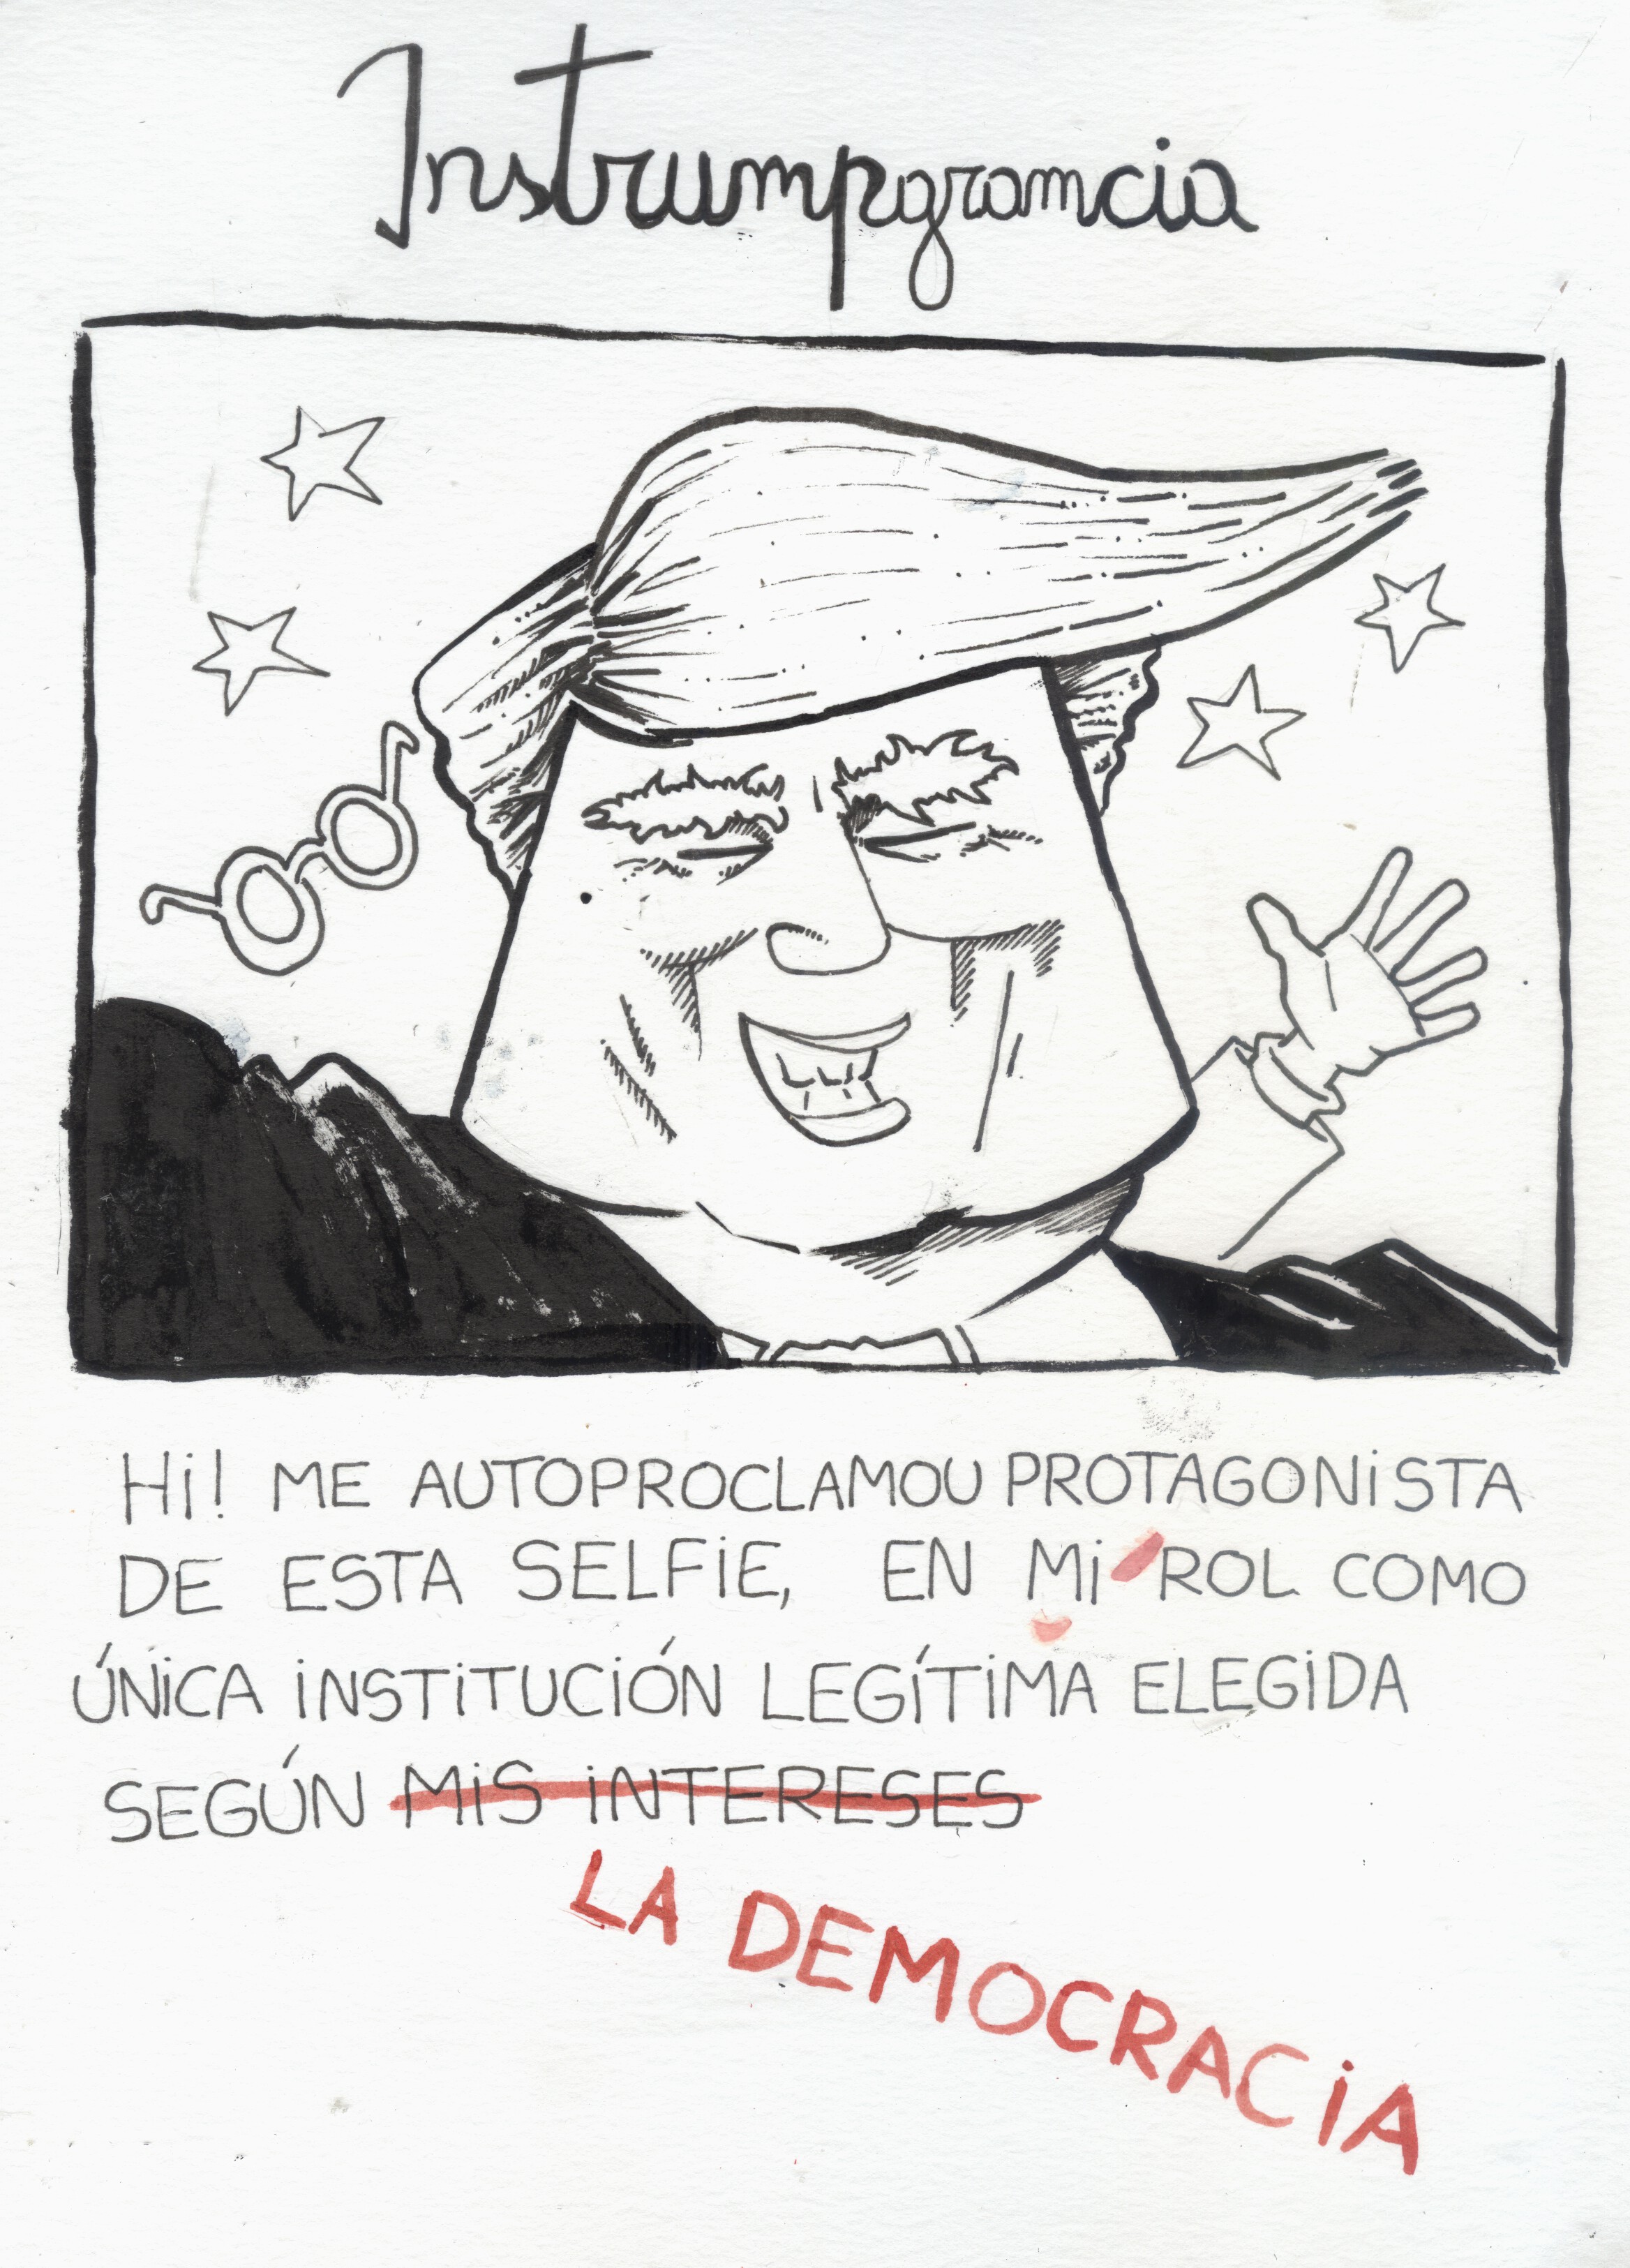 Instrumpgramcia
Hi! ME AUTOPROCLAMOU PROTAGONISTA
DE ESTA SELFIE, EN Mi ROL COMO
ÚNICA INSTITUCIÓN LEGÍTIMA ELEGIDA
SEGÚN MIS INTERESES
LA DEMOCRACIA